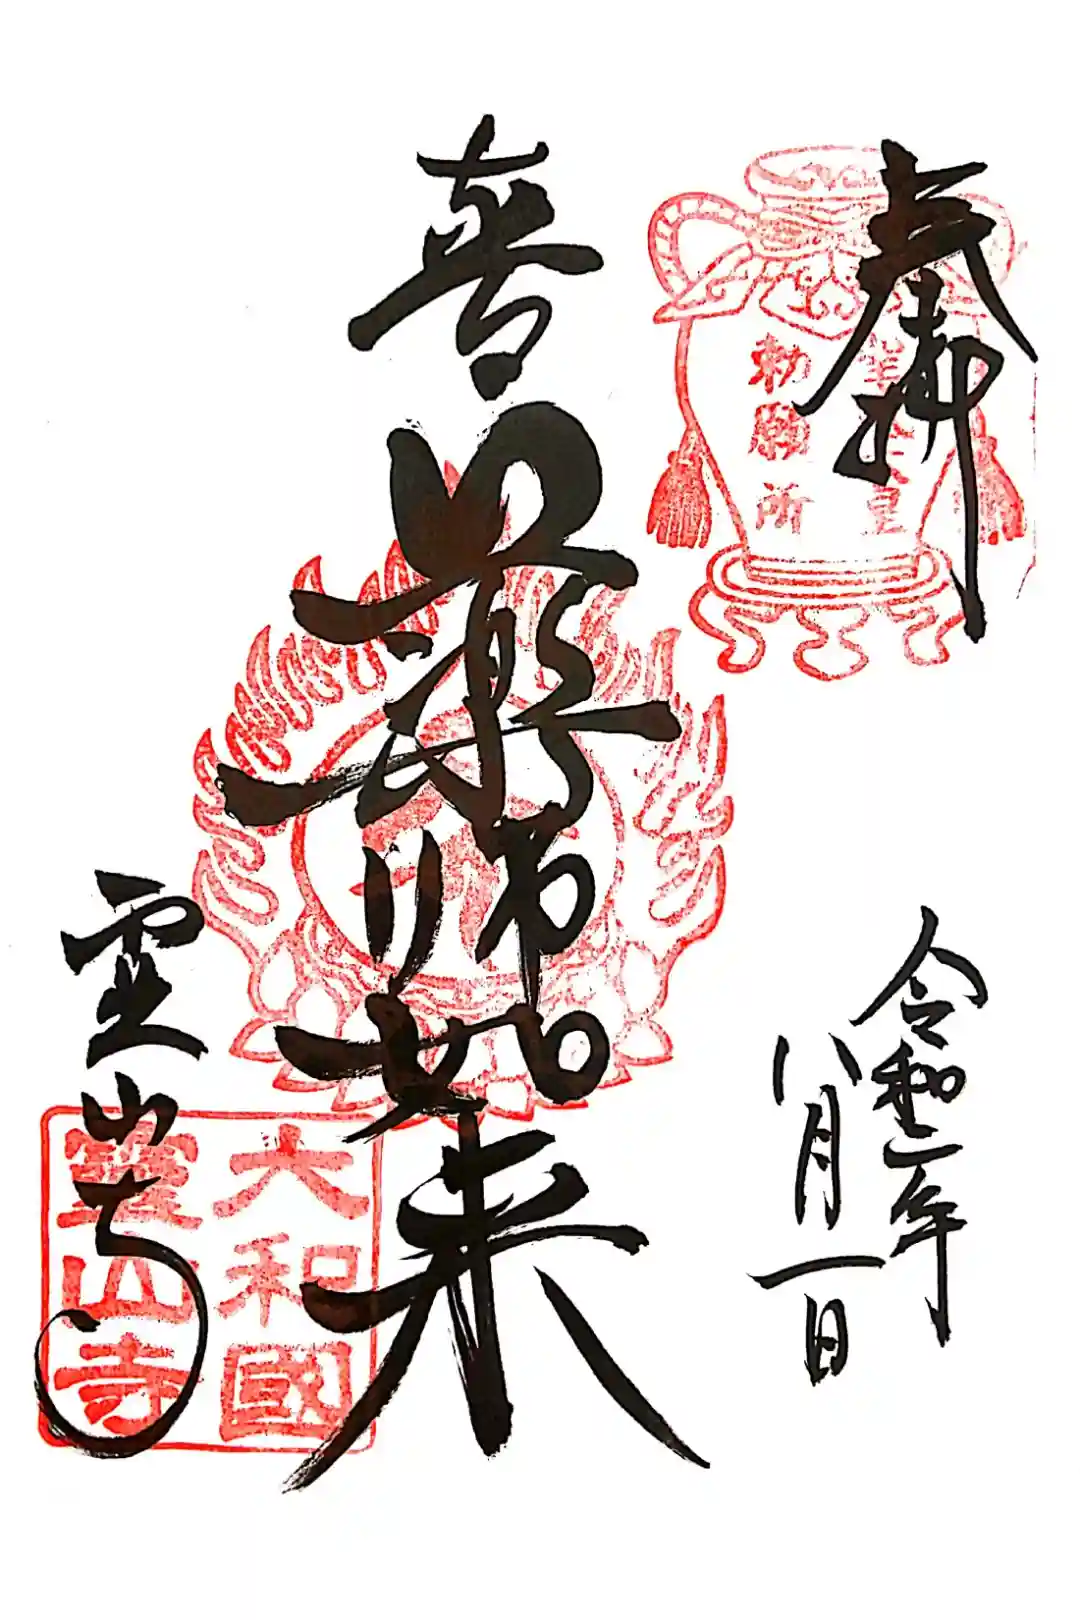 奉拝
聖武天皇
勅願所
令和二年
八月一日
薬師如来
霊山寺
大和國
靈山寺